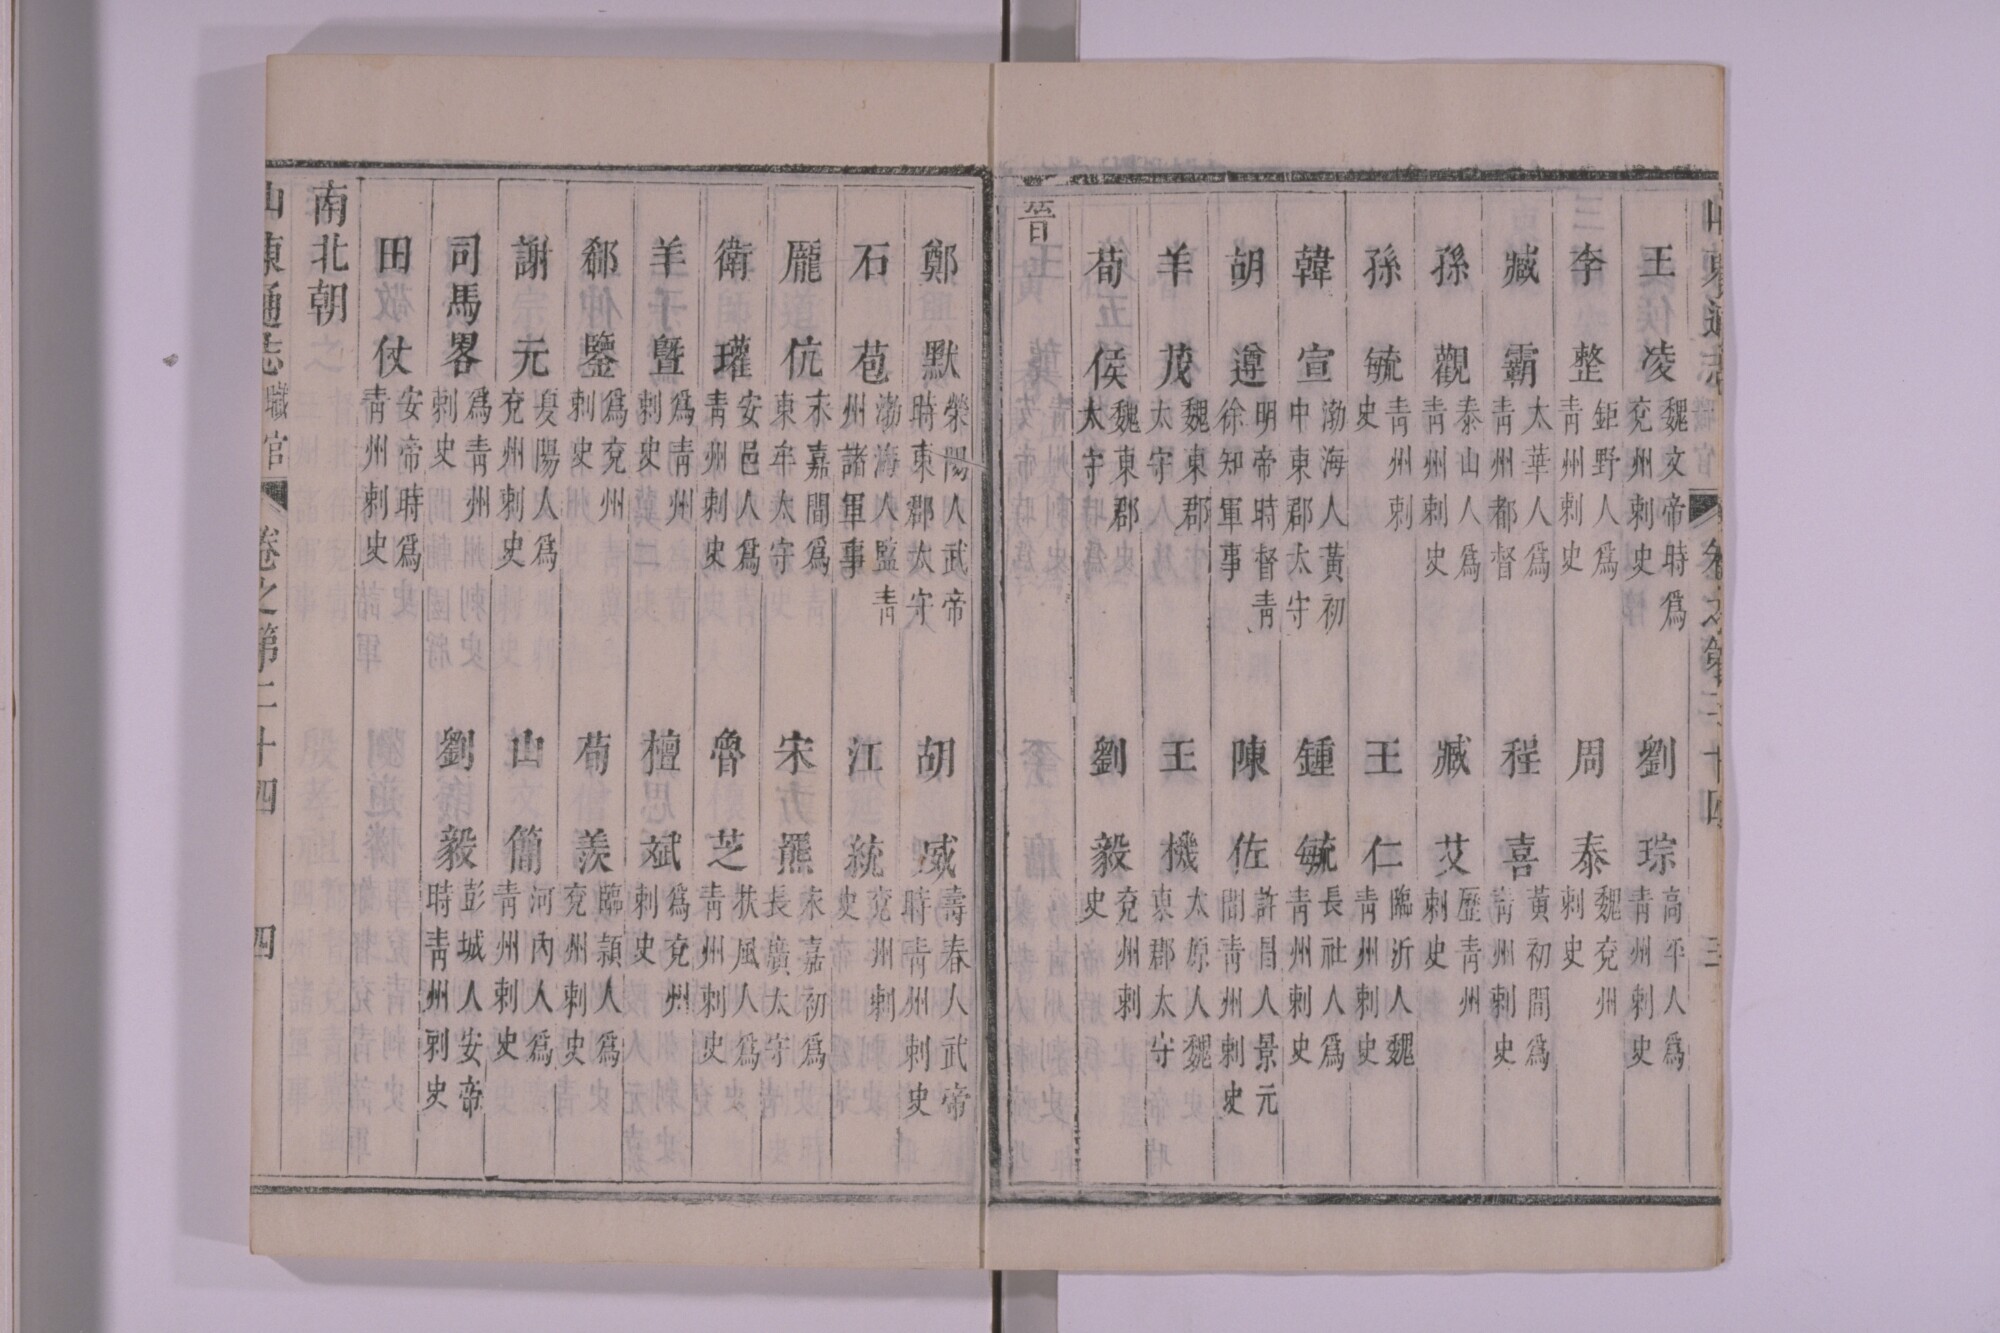 王凌 魏文帝時爲兗州刺史 劉琮 高平人爲青州刺史
李整 鉅野人爲青州刺史 周泰 魏兗州刺史
臧霸 太華人爲青州都督 程喜 黃初間爲青州刺史
孫觀 泰山人爲青州刺史 臧艾 歷青州刺史
孫毓 青州刺史 王仁 臨沂人魏青州刺史
韓宣 渤海人黃初中東郡太守 鍾毓 長社人爲青州刺史
胡遵 明帝時督青徐知軍事 陳佐 許昌人景元間青州刺史
羊茂 魏東郡太守 王機 太原人魏東郡太守
荀侯 魏東郡太守 劉毅 兗州刺史
晉
鄭默 滎陽人武帝時東郡太守 胡威 壽春人武帝時青州刺史
石苞 渤海人監青州諸軍事 江統 兗州刺史
龎伉 永嘉間爲東牟太守 宋羆 永嘉初爲長廣太守
衛瓘 安邑人爲青州刺史 魯芝 扶風人爲青州刺史
羊曁 爲青州刺史 檀斌 爲兗州刺史
郗鑒 爲兗州刺史 荀羡 臨潁人爲兗州刺史
謝元 夏陽人爲兗州刺史 山簡 河內人爲青州刺史
司馬畧 爲青州刺史 劉毅 彭城人安帝時青州刺史
田仗 安帝時爲青州刺史
南北朝
山東通志 職官 卷之第二十四 四